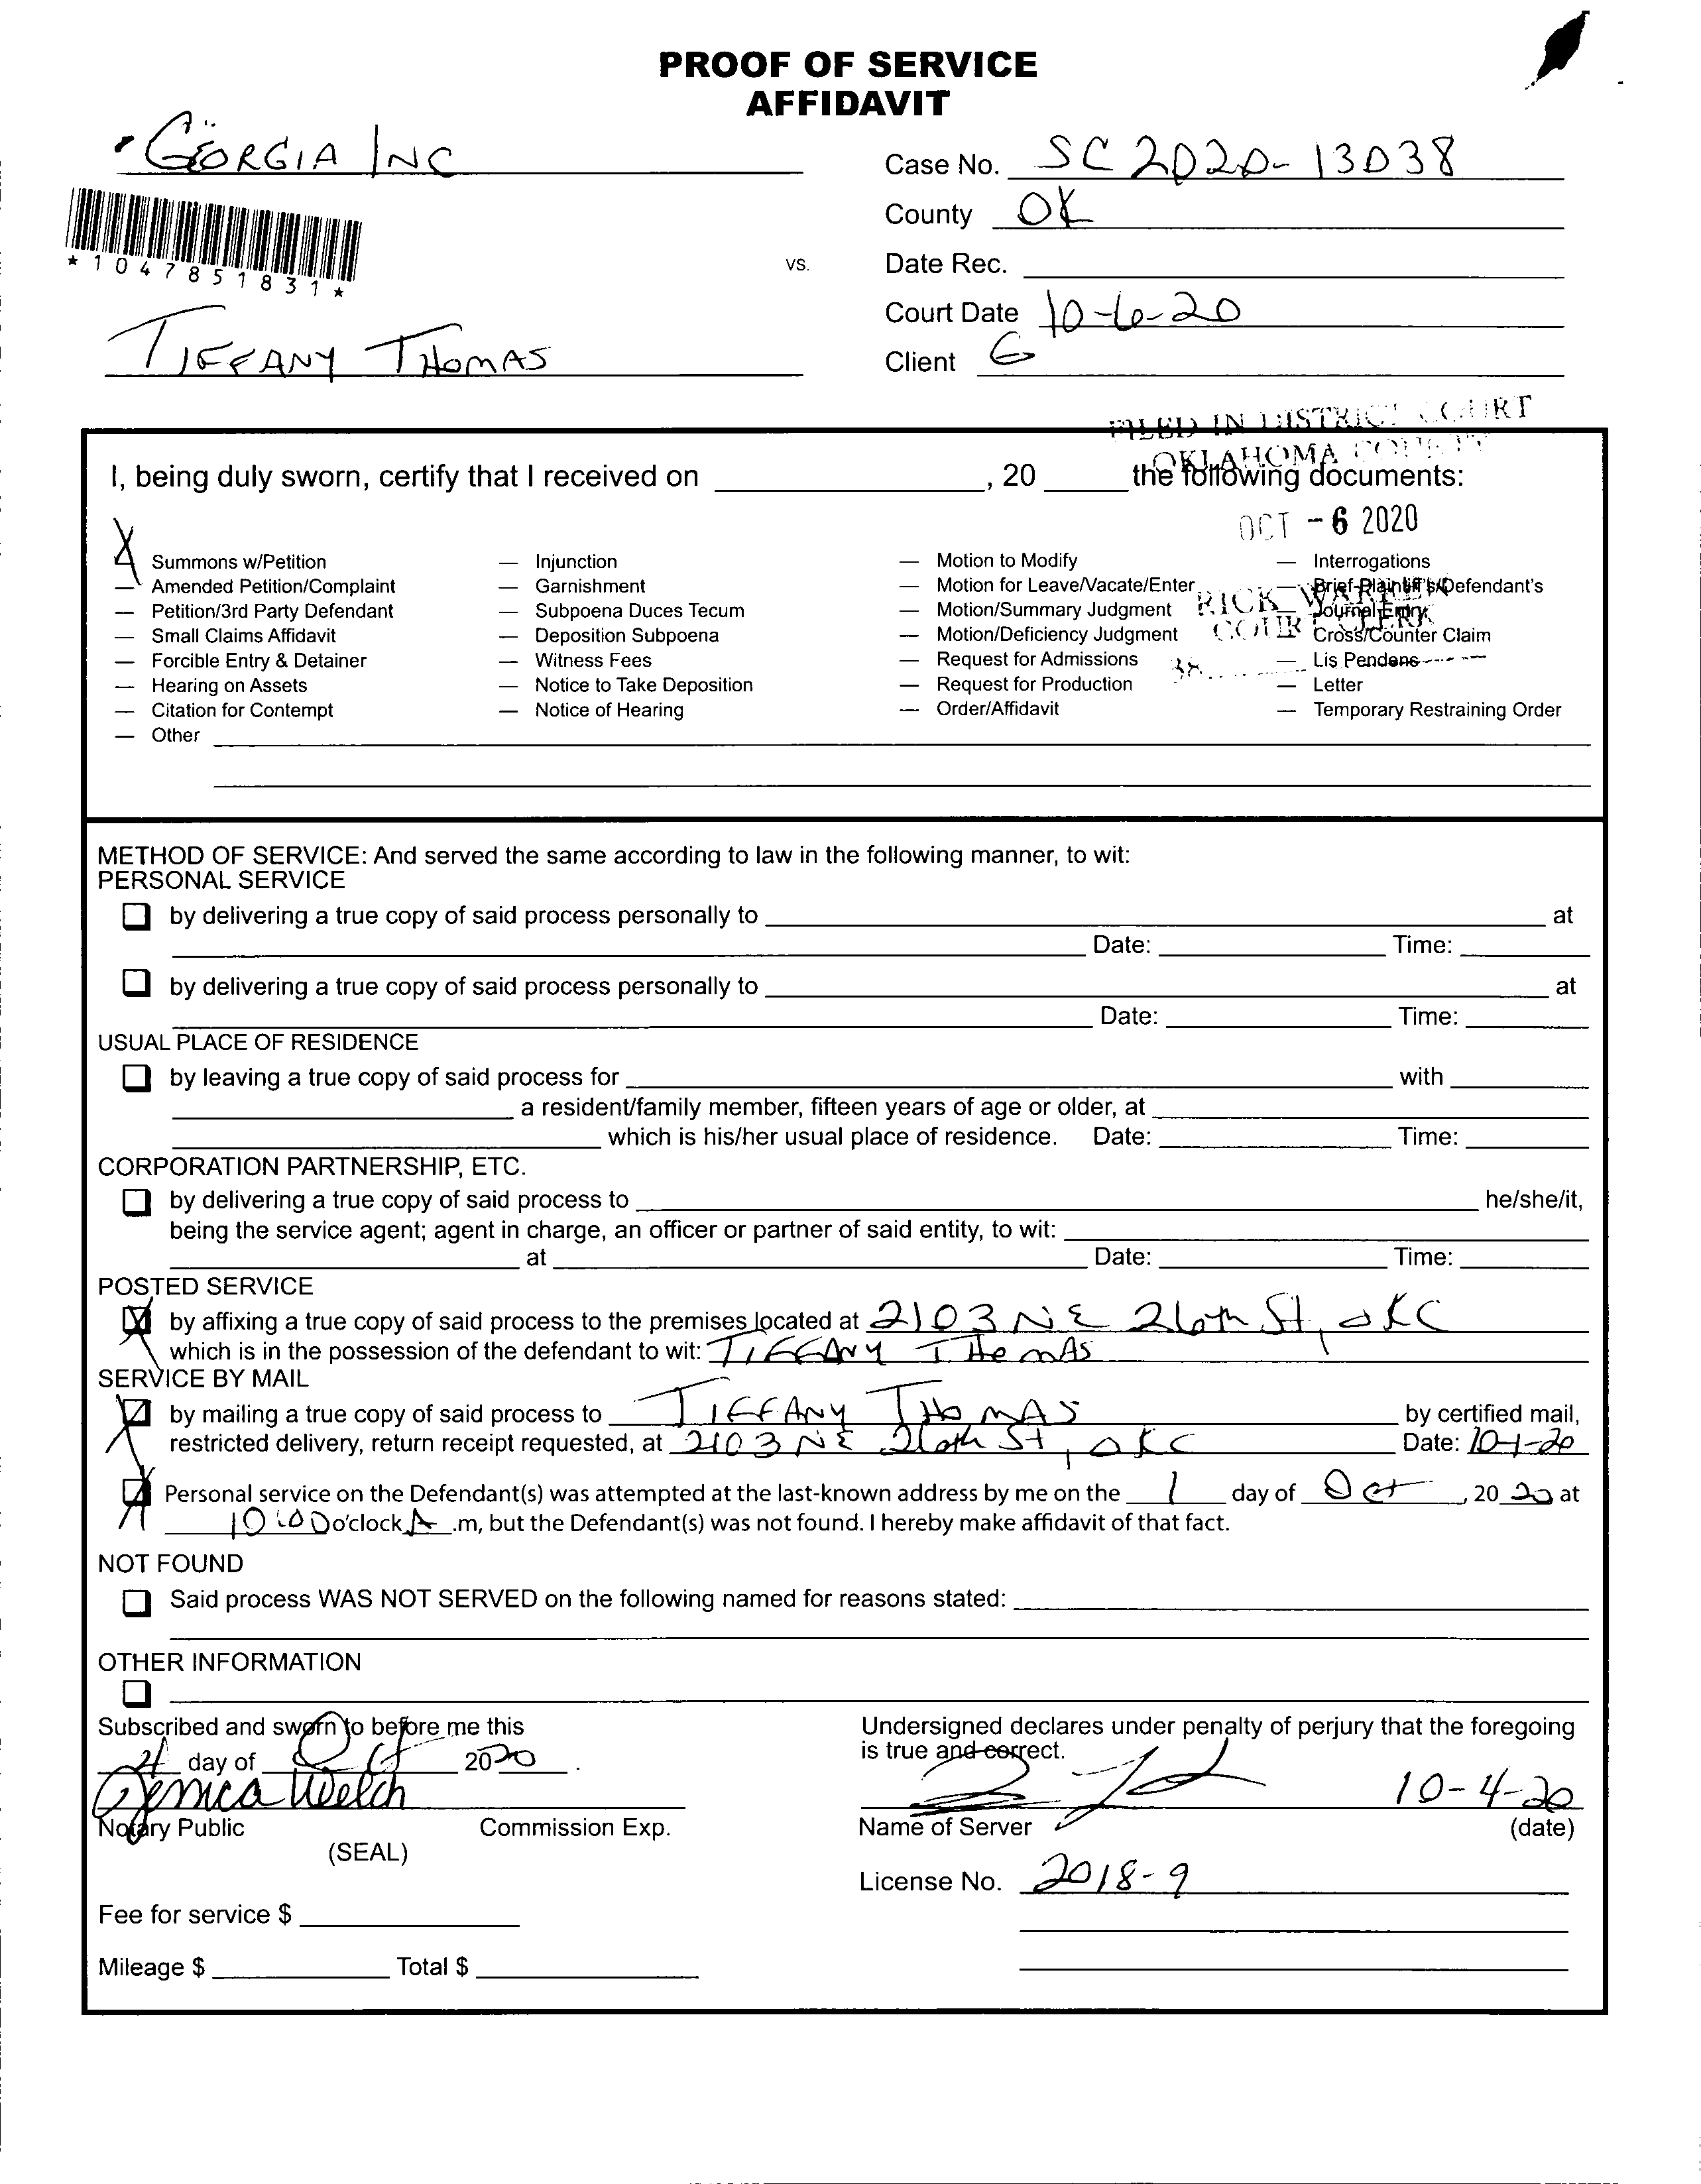 PROOF OF SERVICE
AFFIDAVIT
GEORGIA INC
Case No. SC 2020-13038
County OK
*1047851831*
vs.
Date Rec.
Court Date 10-6-20
TIFFANY THOMAS
Client G
FILED IN DISTRICT COURT
OKLAHOMA COUNTY
I, being duly sworn, certify that I received on ____, 20 ____ the following documents:
OCT - 6 2020
X Summons w/Petition
— Amended Petition/Complaint
— Petition/3rd Party Defendant
— Small Claims Affidavit
— Forcible Entry & Detainer
— Hearing on Assets
— Citation for Contempt
— Other
— Injunction
— Garnishment
— Subpoena Duces Tecum
— Deposition Subpoena
— Witness Fees
— Notice to Take Deposition
— Notice of Hearing
— Motion to Modify
— Motion for Leave/Vacate/Enter
— Motion/Summary Judgment
— Motion/Deficiency Judgment
— Request for Admissions
— Request for Production
— Order/Affidavit
— Interrogations
— Brief-Plaintiff's/Defendant's
— Journal Entry
— Cross/Counter Claim
— Lis Pendens
— Letter
— Temporary Restraining Order
RICK WARREN
COURT CLERK
38
METHOD OF SERVICE: And served the same according to law in the following manner, to wit:
PERSONAL SERVICE
by delivering a true copy of said process personally to ____ at
Date: ____ Time: ____
by delivering a true copy of said process personally to ____ at
Date: ____ Time: ____
USUAL PLACE OF RESIDENCE
by leaving a true copy of said process for ____ with ____
a resident/family member, fifteen years of age or older, at ____
which is his/her usual place of residence. Date: ____ Time: ____
CORPORATION PARTNERSHIP, ETC.
by delivering a true copy of said process to ____ he/she/it,
being the service agent; agent in charge, an officer or partner of said entity, to wit: ____
at ____ Date: ____ Time: ____
POSTED SERVICE
X by affixing a true copy of said process to the premises located at 2103 NE 26th St, OKC
which is in the possession of the defendant to wit: TIFFANY THOMAS
SERVICE BY MAIL
X by mailing a true copy of said process to TIFFANY THOMAS by certified mail,
restricted delivery, return receipt requested, at 2103 NE 26th St, OKC Date: 10-1-20
X Personal service on the Defendant(s) was attempted at the last-known address by me on the 1 day of Oct, 2020 at
10:00 o'clock A.m, but the Defendant(s) was not found. I hereby make affidavit of that fact.
NOT FOUND
Said process WAS NOT SERVED on the following named for reasons stated: ____
OTHER INFORMATION
Subscribed and sworn to before me this
4 day of Oct 2020.
Jenica Welch
Notary Public Commission Exp.
(SEAL)
Fee for service $ ____
Mileage $ ____ Total $ ____
Undersigned declares under penalty of perjury that the foregoing
is true and correct.
10-4-20
Name of Server (date)
License No. 2018-9